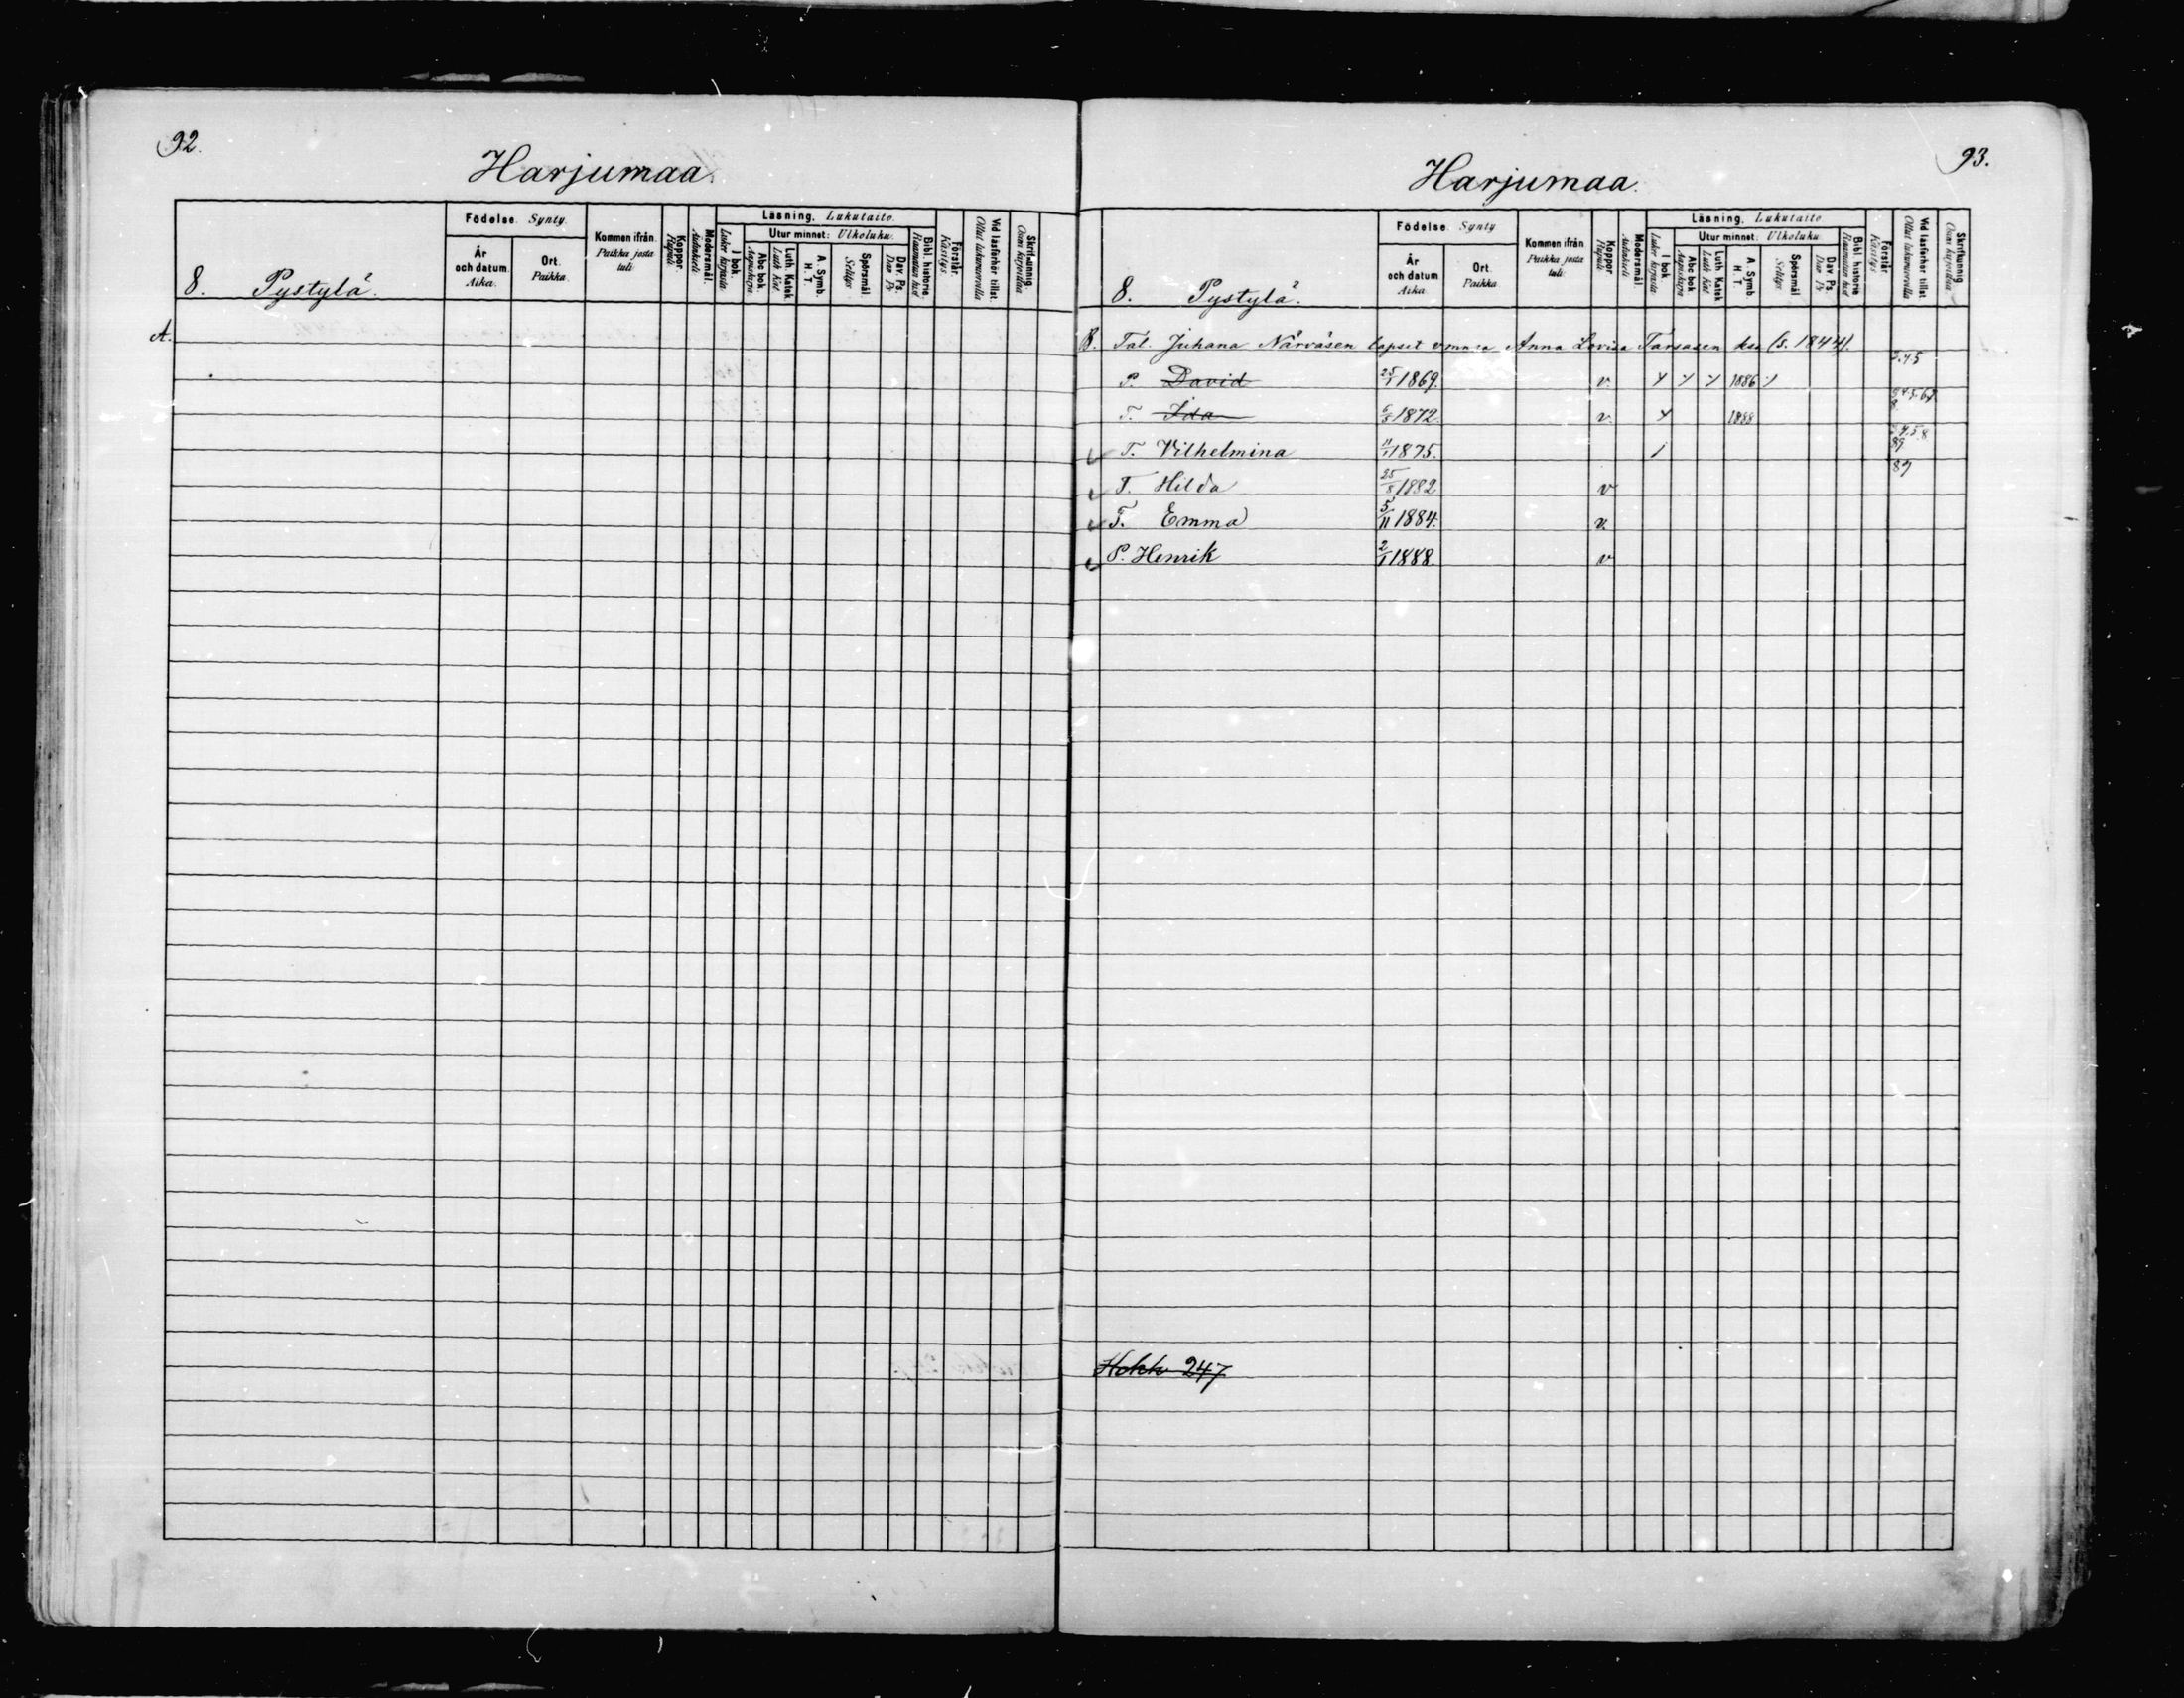 92.
Harjumaa.
8. Pystylä.
Födelse. Synty.
År och datum. Aika.
Ort. Paikka.
Kommen ifrån. Paikka josta tuli.
Koppor. Rupuli
Modersmål. Äidinkieli
Läsning. Lukutaito.
I bok. Lukee kirjasta.
Utur minnet: Ulkoluku.
Abc bok. Aapiskirja.
Luth. Katek. Luth. Kat.
A. Symb. H. T.
Spörsmål. Selitys.
Dav. Ps. Dav. Ps.
Bibl. historie. Raamatun hist.
Förstår. Käsitys.
Vid läsförhör tillst. Ollut lukukuvolla
Skrifkunnig. Osaa kirjoittaa
A.
93.
Harjumaa.
8. Pystylä.
Födelse. Synty
År och datum Aika
Ort. Paikka.
Kommen ifrån Paikka josta tuli.
Koppor Rupuli
Modersmål Äidinkieli
Läsning. Lukutaito
I bok Lukee kirjasta.
Utur minnet: Ulkoluku.
Abc bok Aapiskirja
Luth Katek Luth Kat.
A. Symb H. T.
Spörsmål Selitys
Dav Ps. Dav Ps
Bibl. historie Raamatun hist
Förstår Käsitys
Vid läsförhör tillst
Skrifkunnig Osaa kirjoittaa
B. Tal. Juhana Närväsen lapset Anna Lovisa (s. 1844).
P. David 25/1 1869. v. 1886
T. Ida 1872. v. 1888
T. Vilhelmina 11/1 1875.
T. Hilda 25/8 1882 v
T. Emma 5/11 1884. v.
P. Henrik 2/1 1888. v
Hokk 247